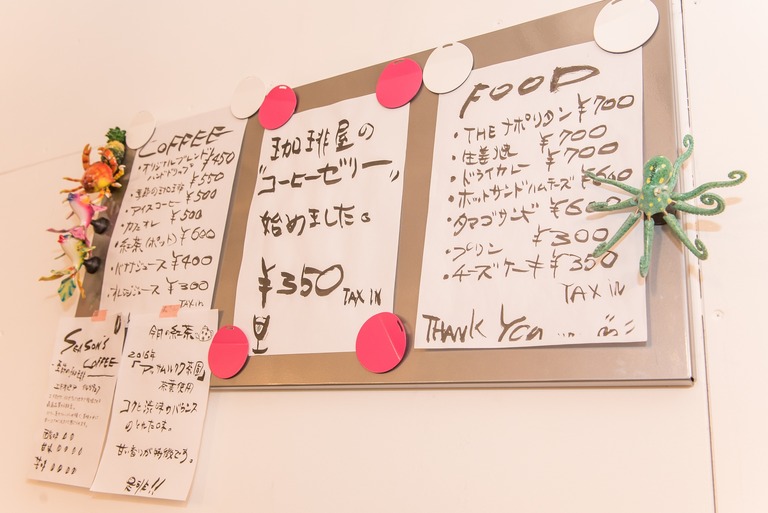 COFFEE
・オリジナルブレンド
ハンドドリップ ¥450
・季節の珈琲 ¥550
・アイスコーヒー ¥500
・カフェオレ ¥500
・紅茶(ポット) ¥600
・バナナジュース ¥400
・オレンジジュース ¥300
TAX IN
珈琲屋の
"コーヒーゼリー"
始めました。
¥350 TAX IN
FOOD
・THE ナポリタン ¥700
・生姜焼 ¥700
・ドライカレー ¥700
・ホットサンドハムチーズ ¥600
・タマゴサンド ¥600
・プリン ¥300
・チーズケーキ ¥350
TAX IN
THANK YOU
SEASON'S
COFFEE
酸味
甘味
苦味
今月の紅茶
2016年
茶葉使用
コクと渋味のバランス
のとれた味。
甘い香りが特徴です。
是非!!